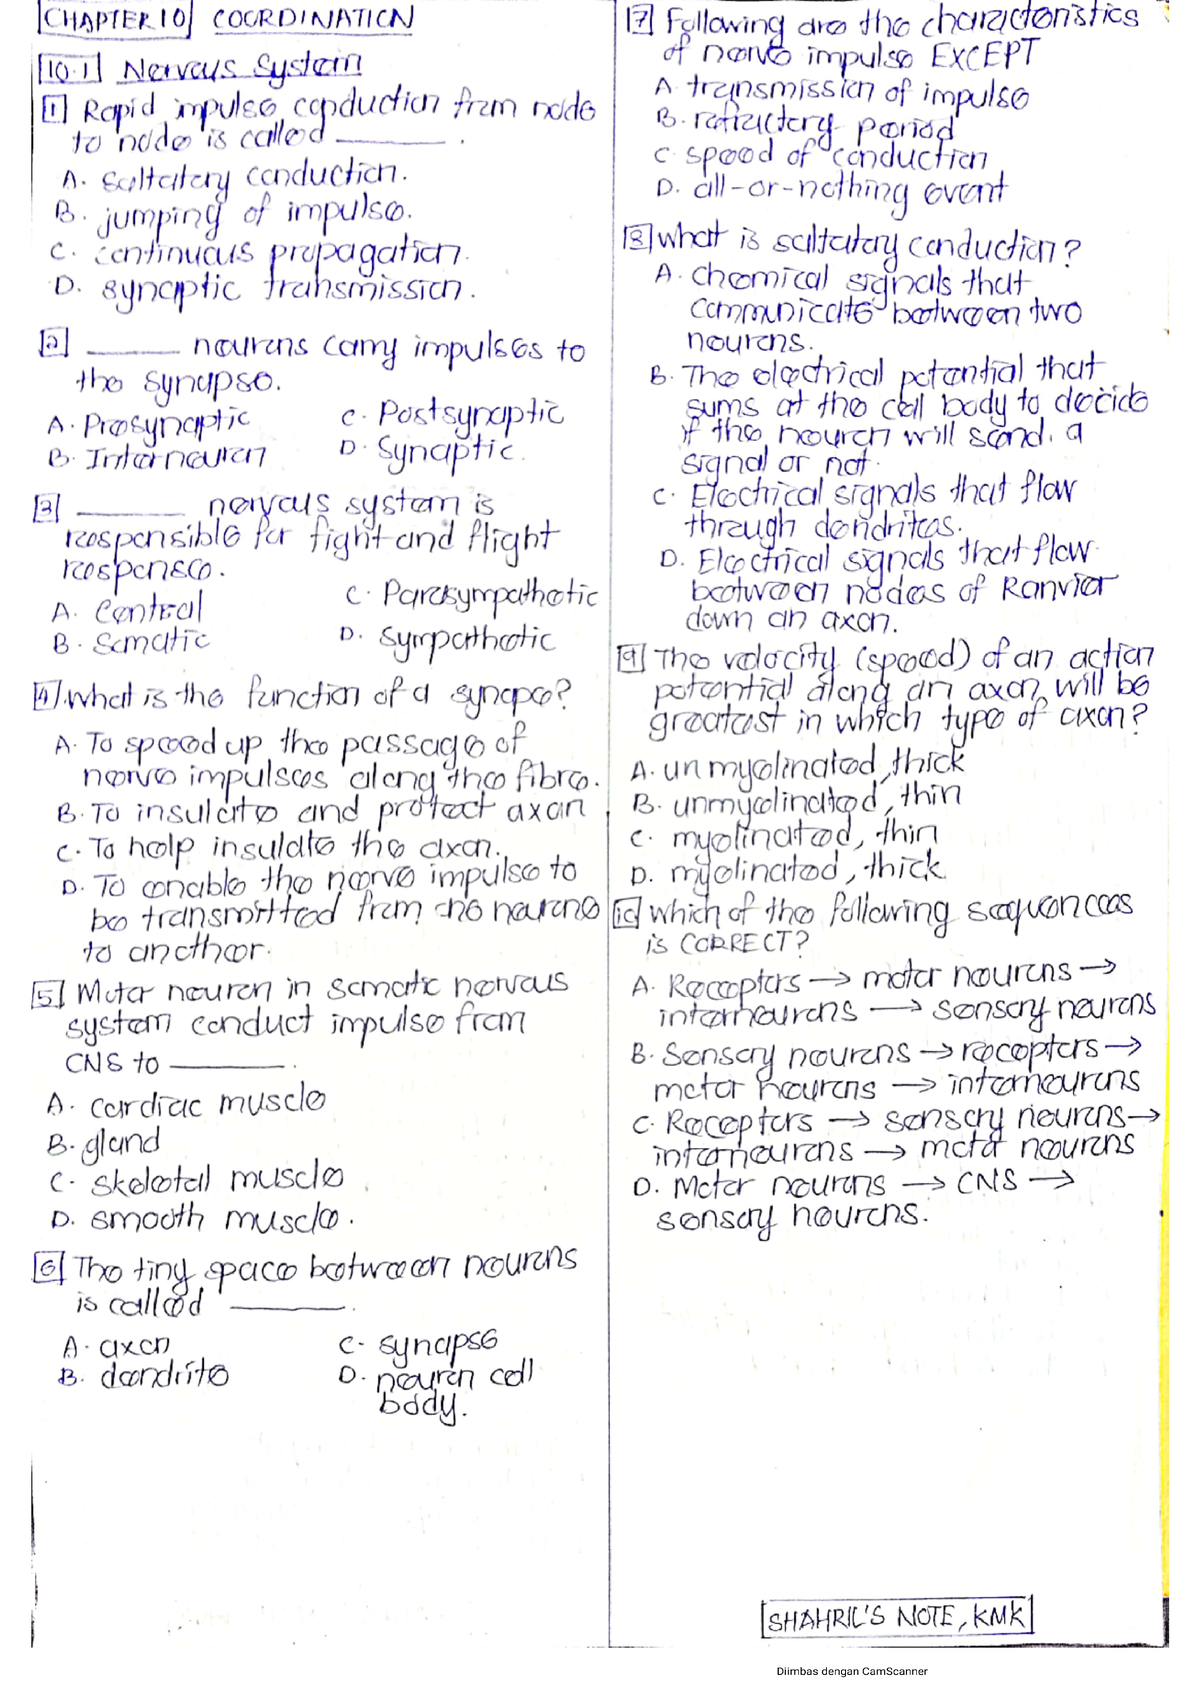 CHAPTER 10 COORDINATION
10.1 Nervous System
1 Rapid impulse conduction from node
to node is called ______ .
A. saltatory conduction.
B. jumping of impulse.
C. continuous propagation.
D. synaptic transmission.
2 ______ neurons carry impulses to
the synapse.
A. Presynaptic C. Postsynaptic
B. Interneuron D. Synaptic.
3 ______ nervous system is
responsible for fight and flight
response.
A. Central C. Parasympathetic
B. Somatic D. Sympathetic
4 What is the function of a synapse?
A. To speed up the passage of
nerve impulses along the fibre.
B. To insulate and protect axon
C. To help insulate the axon.
D. To enable the nerve impulse to
be transmitted from one neurone
to another.
5 Motor neuron in somatic nervous
system conduct impulse from
CNS to ______ .
A. cardiac muscle
B. gland
C. skeletal muscle
D. smooth muscle.
6 The tiny space between neurons
is called ______ .
A. axon C. synapse
B. dendrite D. neuron cell
body.
7 Following are the characteristics
of nerve impulse EXCEPT
A. transmission of impulse
B. refractory period
C. speed of conduction
D. all-or-nothing event
8 What is saltatory conduction?
A. chemical signals that
communicate between two
neurons.
B. The electrical potential that
sums at the cell body to decide
if the neuron will send a
signal or not.
C. Electrical signals that flow
through dendrites.
D. Electrical signals that flow
between nodes of Ranvier
down an axon.
9 The velocity (speed) of an action
potential along an axon will be
greatest in which type of axon?
A. unmyelinated, thick
B. unmyelinated, thin
C. myelinated, thin
D. myelinated, thick
10 Which of the following sequences
is CORRECT?
A. Receptors → motor neurons →
interneurons → sensory neurons
B. Sensory neurons → receptors →
motor neurons → interneurons
C. Receptors → sensory neurons →
interneurons → motor neurons
D. Motor neurons → CNS →
sensory neurons.
SHAHRIL'S NOTE, KMK
Diimbas dengan CamScanner